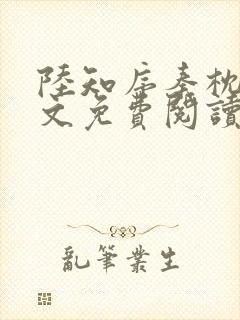 陸知宸秦枕
文免費閱讀
亂筆叢生